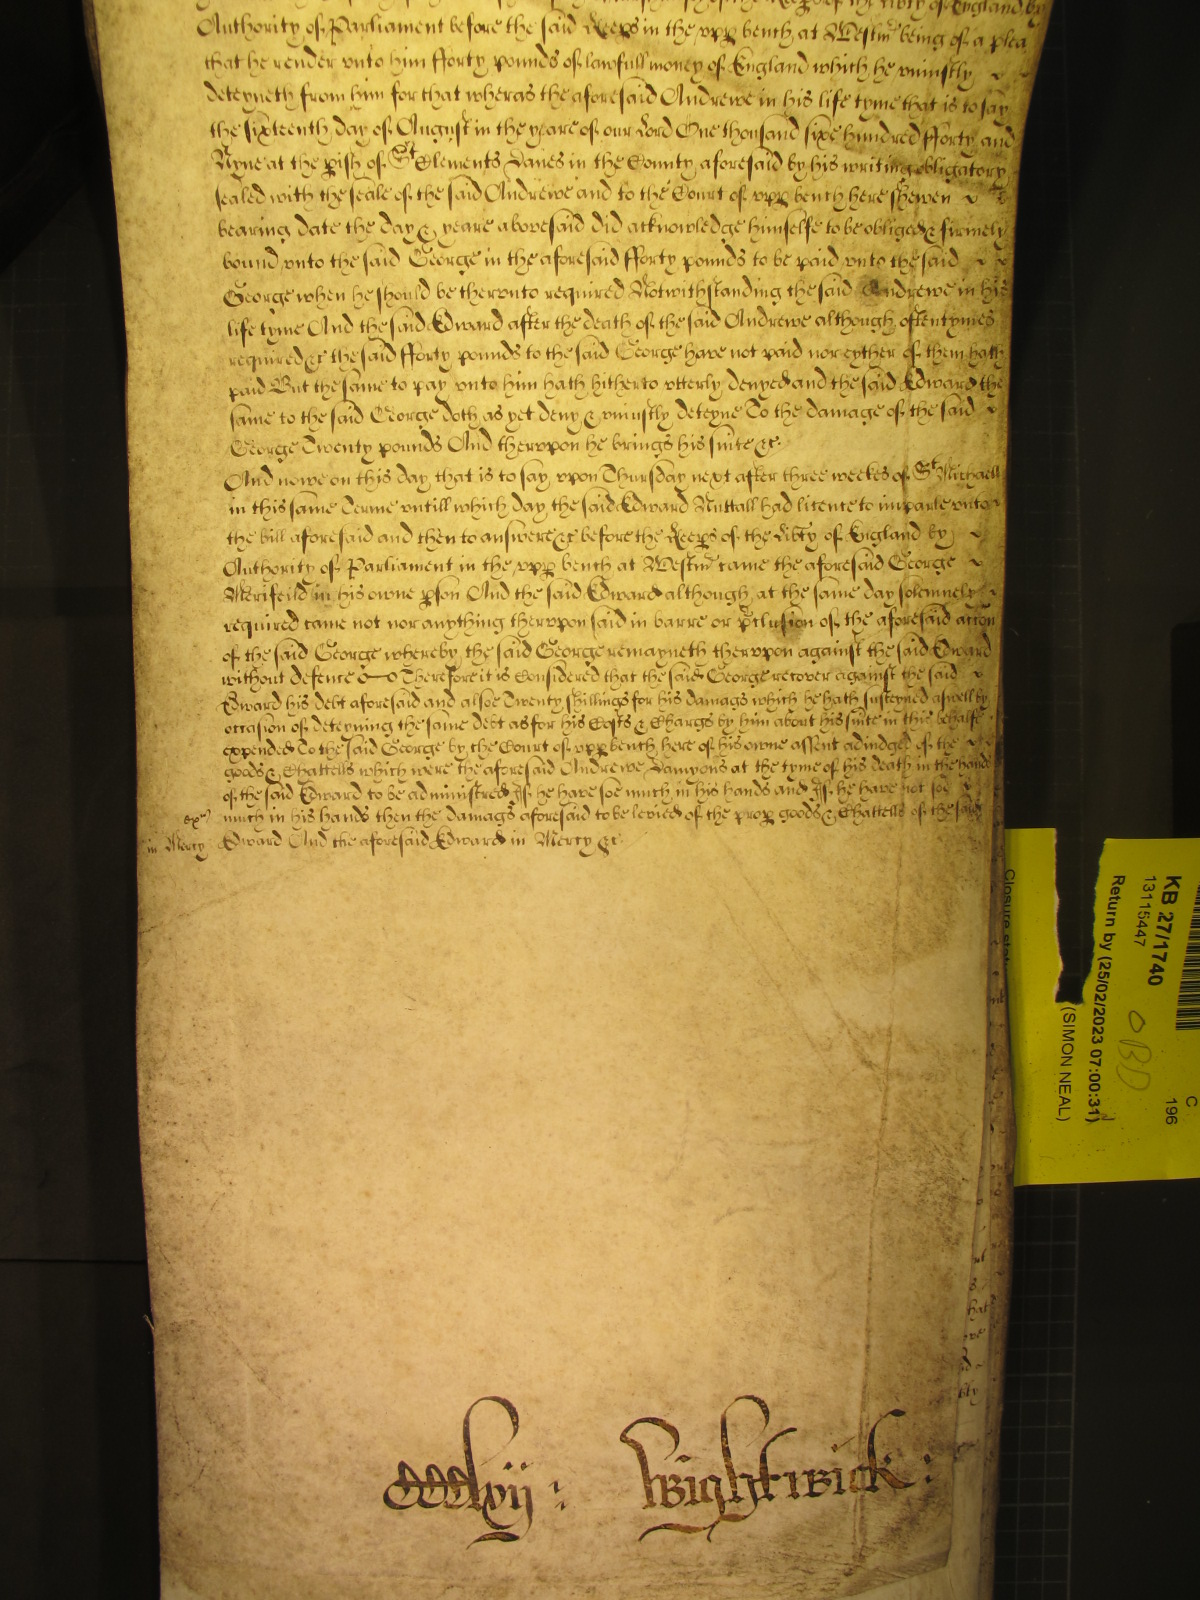 of the libty of England by
Authority of Parliament before the said Keeps in the upp bench at Westmr being of a plea
that he render unto him fforty pounds of lawfull money of England which he uniustly
deteyneth from him for that wheras the aforesaid Andrewe in his life tyme that is to say
the sixteenth day of August in the yeare of our Lord One thousand sixe hundred fforty and
Nyne at the pish of St Clements Danes in the County aforesaid by his writing obligatory
sealed with the seale of the said Andrewe and to the Court of upp bench here shewen
bearing date the day & yeare abovesaid did acknowledge himselfe to be obliged & firmely
bound unto the said George in the aforesaid fforty pounds to be paid unto the said
George when he should be therunto required Notwithstanding the said Andrewe in his
life tyme And the said Edward after the death of the said Andrewe although oftentymes
required &c the said fforty pounds to the said George have not paid nor eyther of them hath
paid But the same to pay unto him hath hitherto utterly denyed and the said Edward the
same to the said George doth as yet deny & uniustly deteyne To the damage of the said
George Twenty pounds And therupon he brings his suite &c
And nowe on this day that is to say upon Thursday next after three weekes of St Michaell
in this same Terme untill which day the said Edward Nuttall had licence to imparle unto
the bill aforesaid and then to answere &c before the Keeps of the libty of England by
Authority of Parliament in the upp bench at Westmr came the aforesaid George
Merifeild in his owne pson And the said Edward although at the same day solemnely
required came not nor anything therupon said in barre or pclusion of the aforesaid accon
of the said George whereby the said George remayneth therupon against the said Edward
without defence Therefore it is Considered that the said George recover against the said
Edward his debt aforesaid and alsoe Twenty shillings for his damags which he hath susteyned aswell by
occasion of deteyning the same debt as for his Costs & Chargs by him about his suite in this behalfe
expended To the said George by the Court of upp bench here of his owne assent adiudged of the
goods & Chattells which were the aforesaid Andrewe Dampons at the tyme of his death in the hands
of the said Edward to be administred If he have soe much in his hands and If he have not soe
much in his hands then the damags aforesaid to be levied of the prop goods & Chattells of the said
Edward And the aforesaid Edward in Mercy &c
in Mercy
CCClxij : Wightwick :
KB 27/1740
13115447
Return by (25/02/2023 07:00:31)
(SIMON NEAL)
C
196